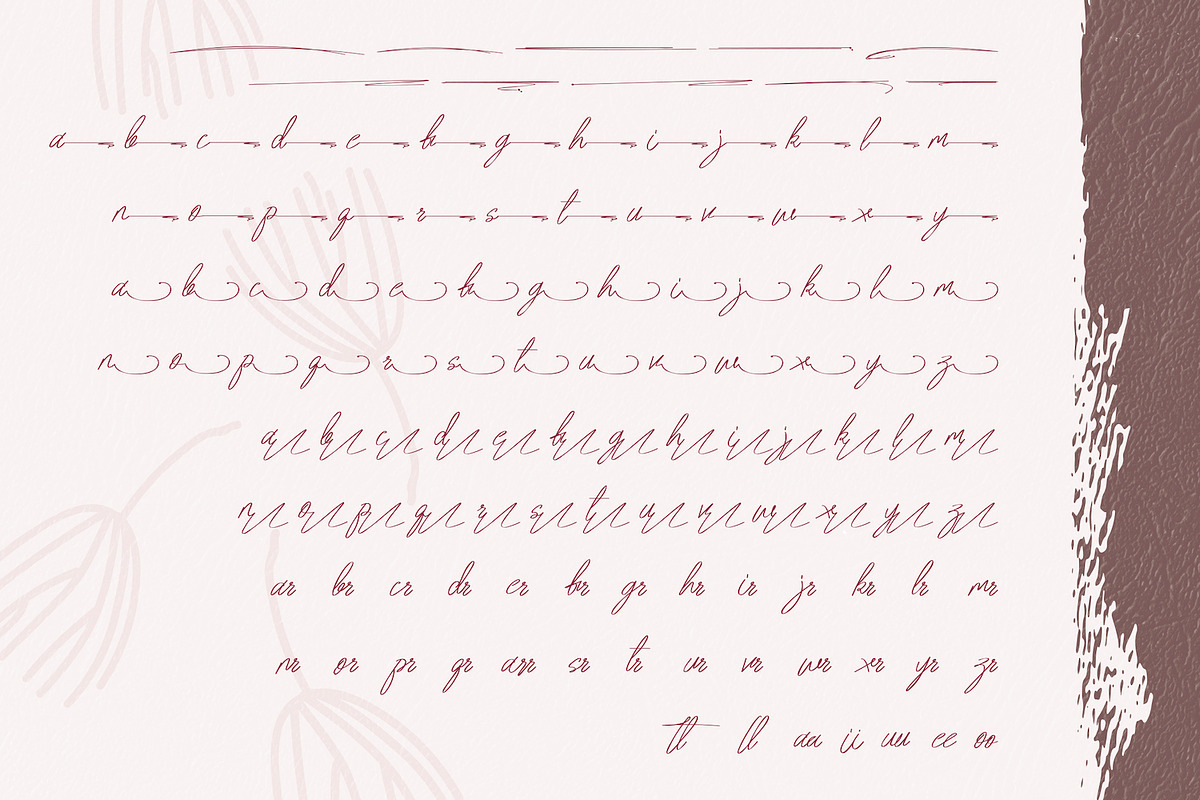 a b c d e f g h i j k l m
n o p q r s t u v w x y
a b c d e f g h i j k l m
n o p q r s t u v w x y z
a b c d e f g h i j k l m
n o p q r s t u v w x y z
ar br cr dr er fr gr hr ir jr kr lr mr
nr or pr qr arr sr tr ur vr wr xr yr zr
tt ll aa ii uu ee oo